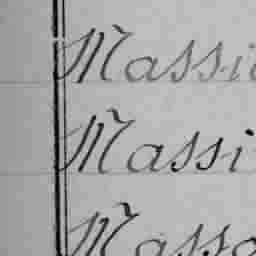 Massi
Massi
Masso